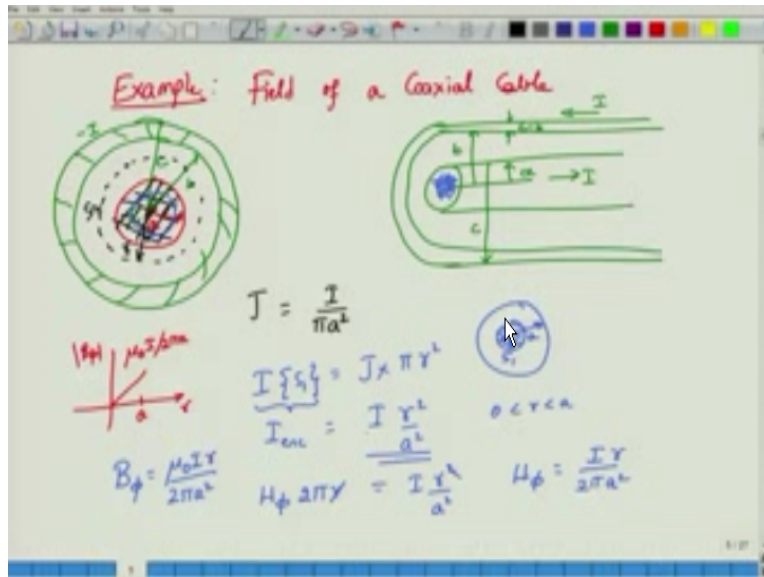 Example: Field of a Coaxial Cable
-I
c
b
I
b
a
→I
c
J = I / πa²
|Bφ|
μ₀I/2πa
a
r
I{S₁} = J × πr²
I_enc = I r²/a²
0 < r < a
S₁
Bφ = μ₀Ir / 2πa²
Hφ 2πr = I r²/a²
Hφ = Ir / 2πa²